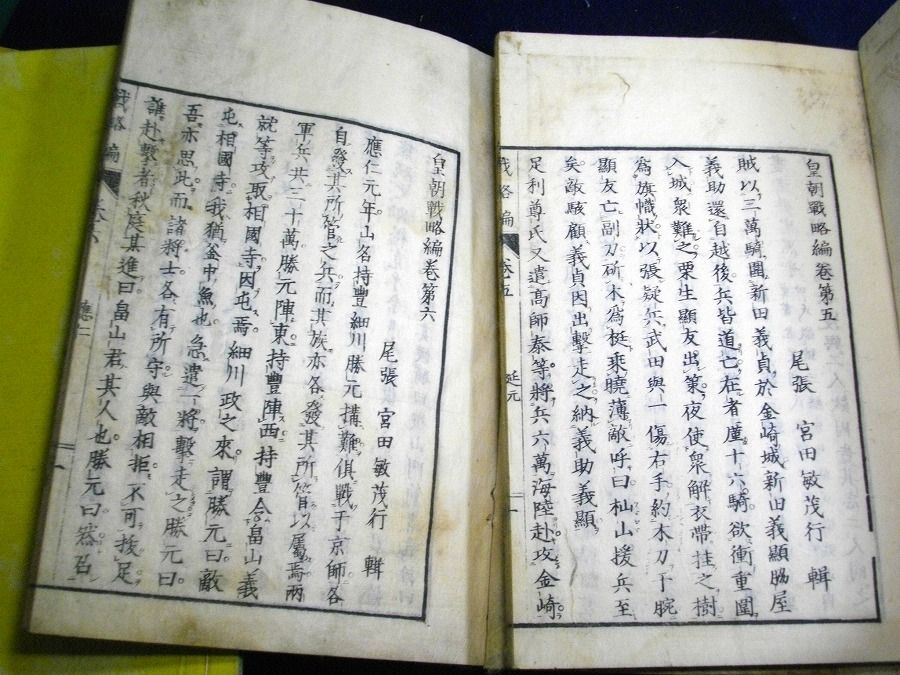 皇朝戰略編卷第五
尾張 宮田敏茂行 輯
賊以三萬騎圍新田義貞於金崎城新田義顯脇屋
義助還自越後兵皆道亡在者廑十六騎欲衝重圍
入城衆難之栗生顯友出策夜使衆解衣帶挂之樹
爲旗幟狀以張疑兵武田與一傷右手約木刀于腕
顯友亡副刀斫木爲梃乘曉薄敵呼曰杣山援兵至
矣敵駭顧義貞因出擊走之納義助義顯
足利尊氏又遣高師泰等將兵六萬海陸赴攻金崎
戰略編 卷五 延元 一
皇朝戰略編卷第六
尾張 宮田敏茂行 輯
應仁元年山名持豐細川勝元搆難俱戰于京師各
自發其所管之兵而其族亦各發其所管以屬焉兩
軍兵共二十萬勝元陣東持豐陣西持豐令畠山義
就等攻取相國寺因屯焉細川政之來謂勝元曰敵
屯相國寺我猶釜中魚也急遣一將擊走之勝元曰
吾亦思此而諸將士各有所守與敵相拒不可拨足
誰赴擊者秋庭某進曰畠山君其人也勝元曰召
戰略編 卷六 應仁 一